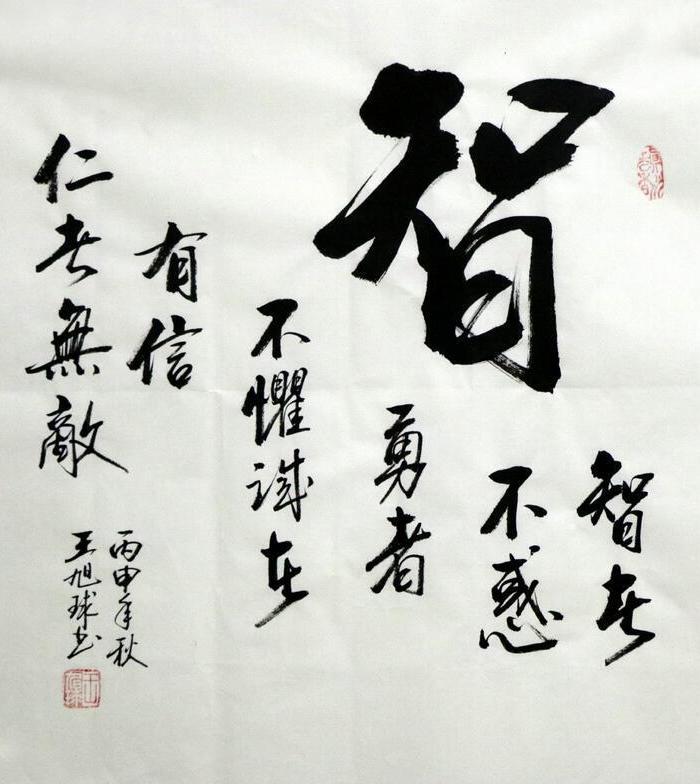 智
智者
不惑
勇者
不懼誠者
有信
仁者無敵
丙申年秋
王旭球书